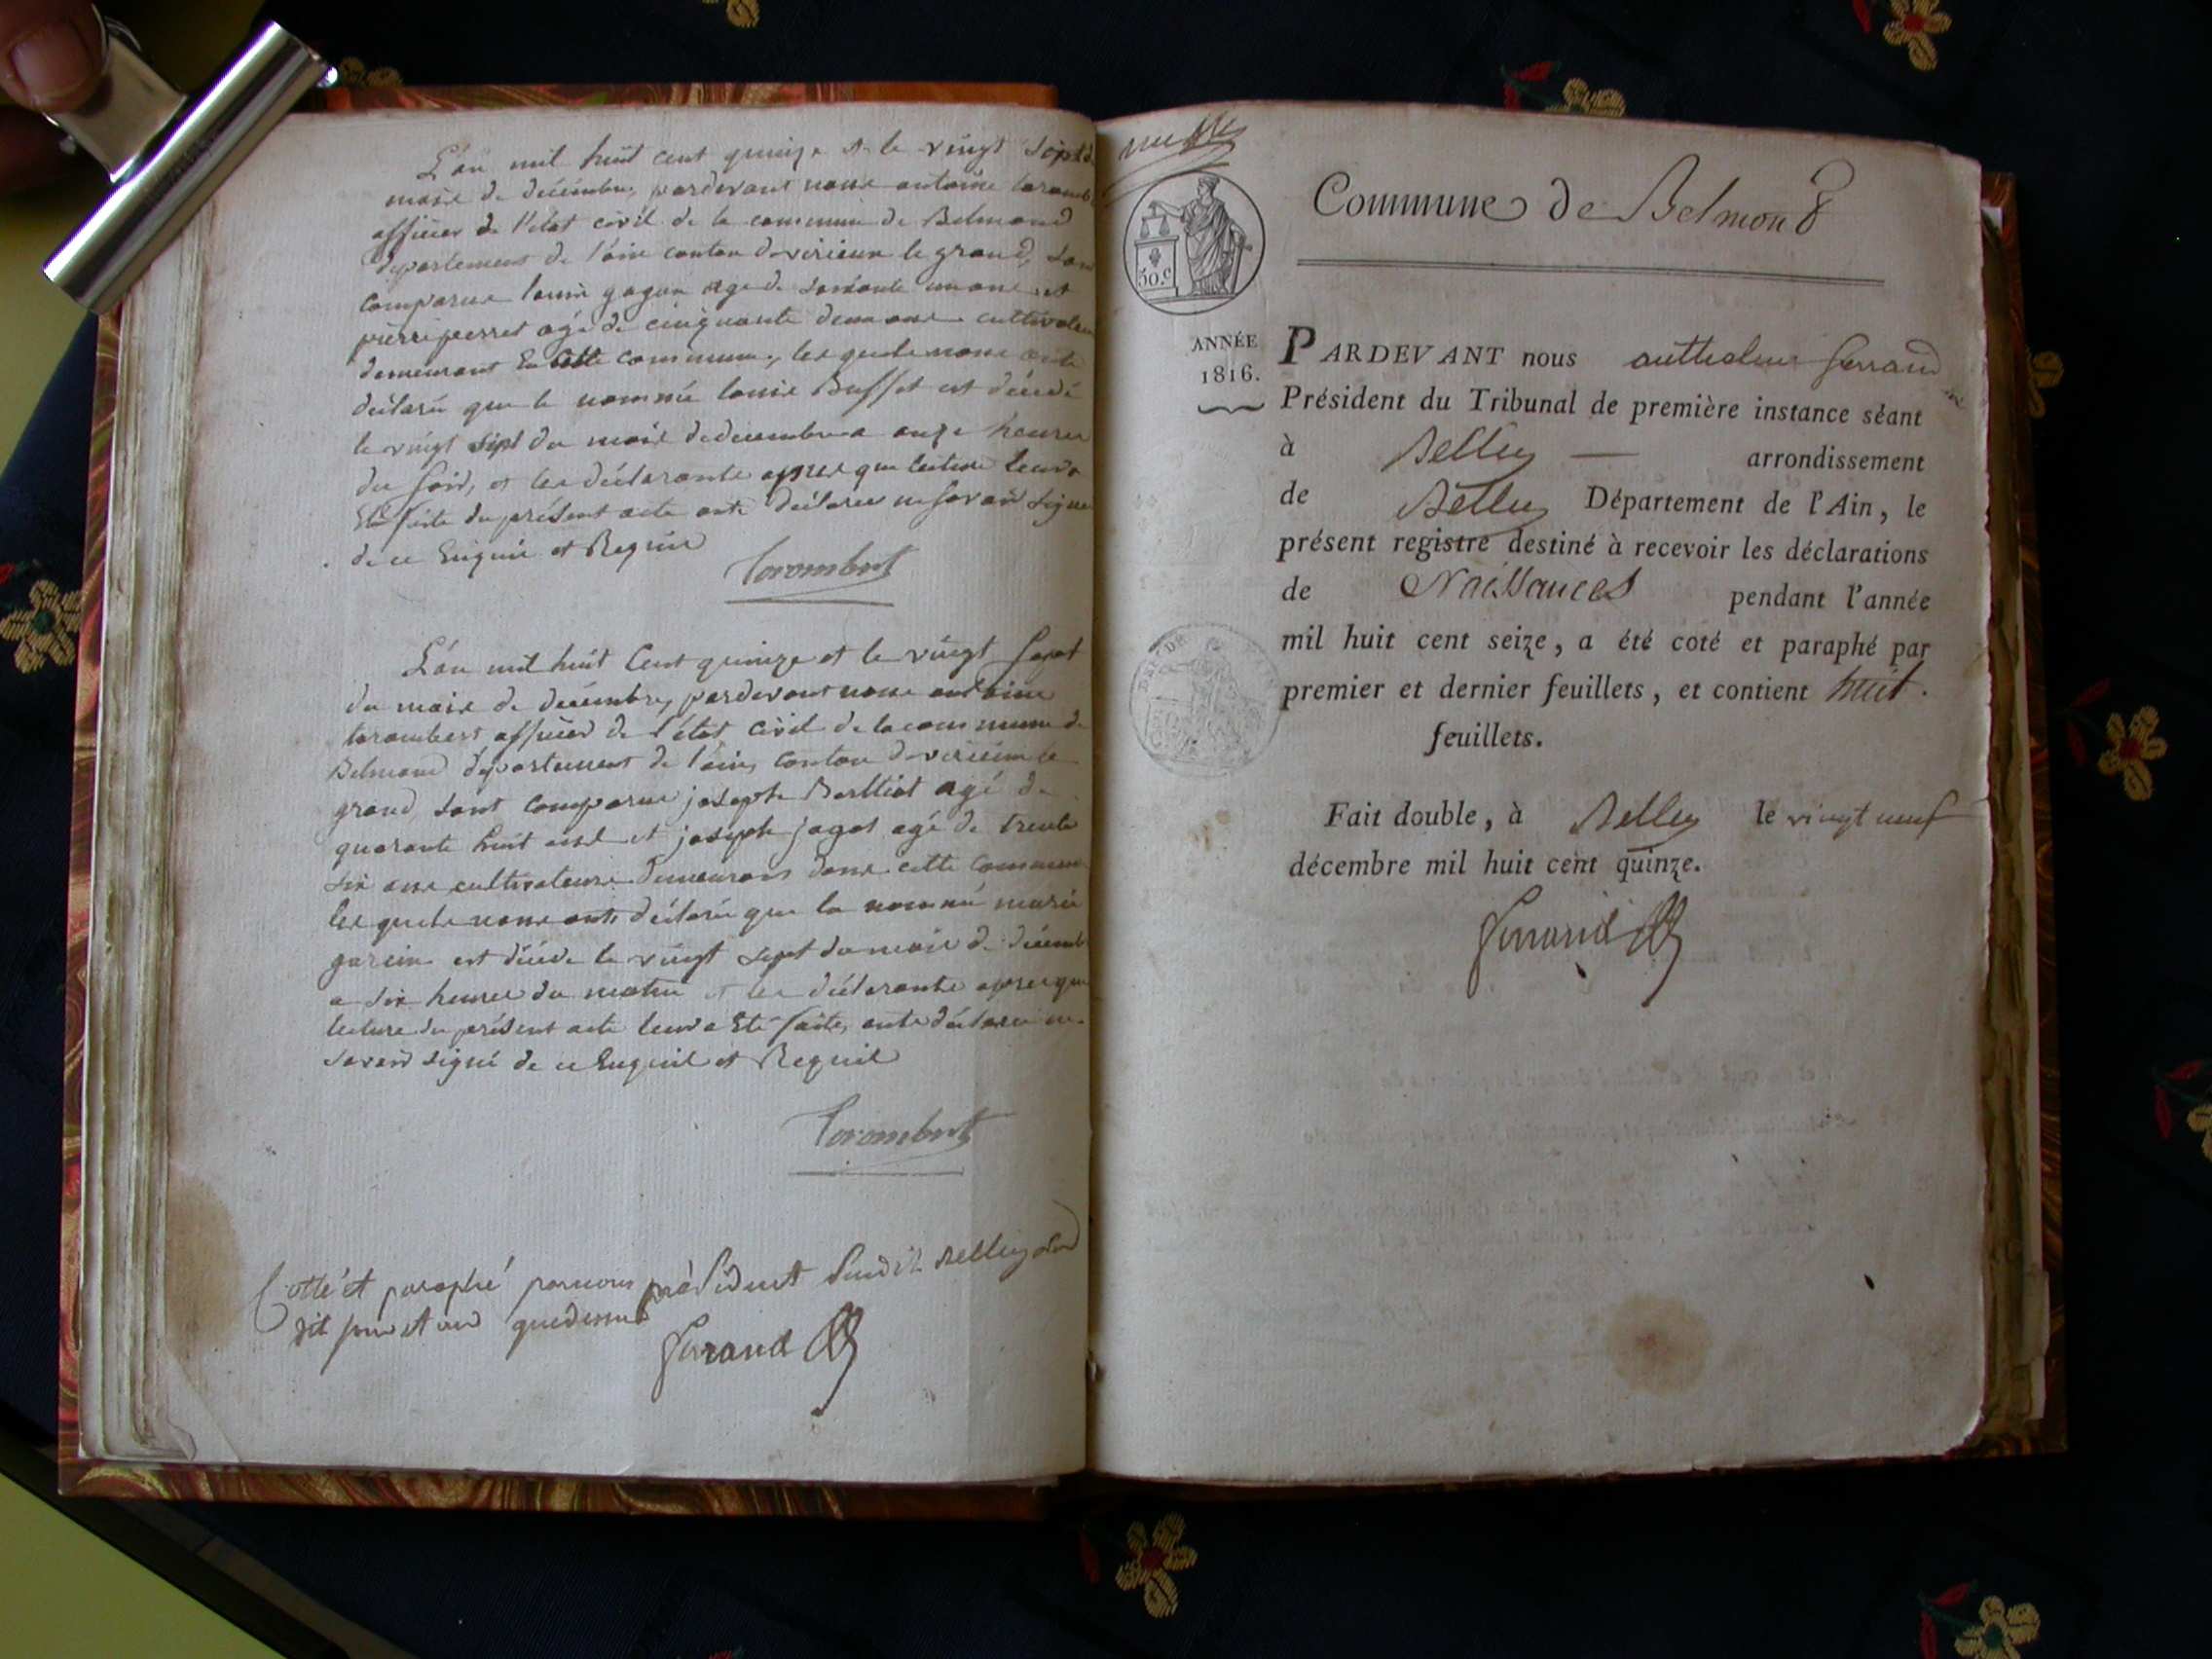 L'an mil huit cent quinze et le vingt sept du
mois de décembre, pardevant nous antoine toromb
officier de l'état civil de la commune de Belmond
département de l'ain canton de virieux le grand, sont
comparus louis gagon agé de soixante un ans et
pierre perret agé de cinquante deux ans cultivateur
demeurant en cette commune, les quels nous onts
déclaré que le nommé louis Buffet est décédé
le vingt sept du mois de décembre a onze heures
du soir, et les déclarants apres que lecture leur a
Eté faite du présent acte onts déclaré ne savoir signé
de ce Enquis et Requis
Torombert
L'an mil huit Cent quinze et le vingt sept
du mois de décembre, pardevant nous antoine
torombert officier de l'état civil de la commune de
Belmond département de l'ain, canton de virieux le
grand sont comparus joseph Berlliot agé de
quarante huit ans et joseph jagot agé de trente
six ans cultivateurs demeurans dans cette commune
les quels nous onts déclaré que la nommé marie
garin est décédé le vingt sept du mois de décemb
a six heures du matin et les déclarants apres que
lecture du présent acte leur a Eté faite, onts déclaré ne
savoir signé de ce Enquis et Requis
Torombert
Cotté et paraphé par nous président susdit Belley
dit jour et an que dessus
Ferrand
Commune de Belmond
50.c
ANNÉE
1816.
PARDEVANT nous anthelme ferrand
Président du Tribunal de première instance séant
à Belley — arrondissement
de Belley Département de l'Ain, le
présent registre destiné à recevoir les déclarations
de Naissances pendant l'année
mil huit cent seize, a été coté et paraphé par
premier et dernier feuillets, et contient huit.
feuillets.
Fait double, à Belley le vingt neuf
décembre mil huit cent quinze.
Ferrand